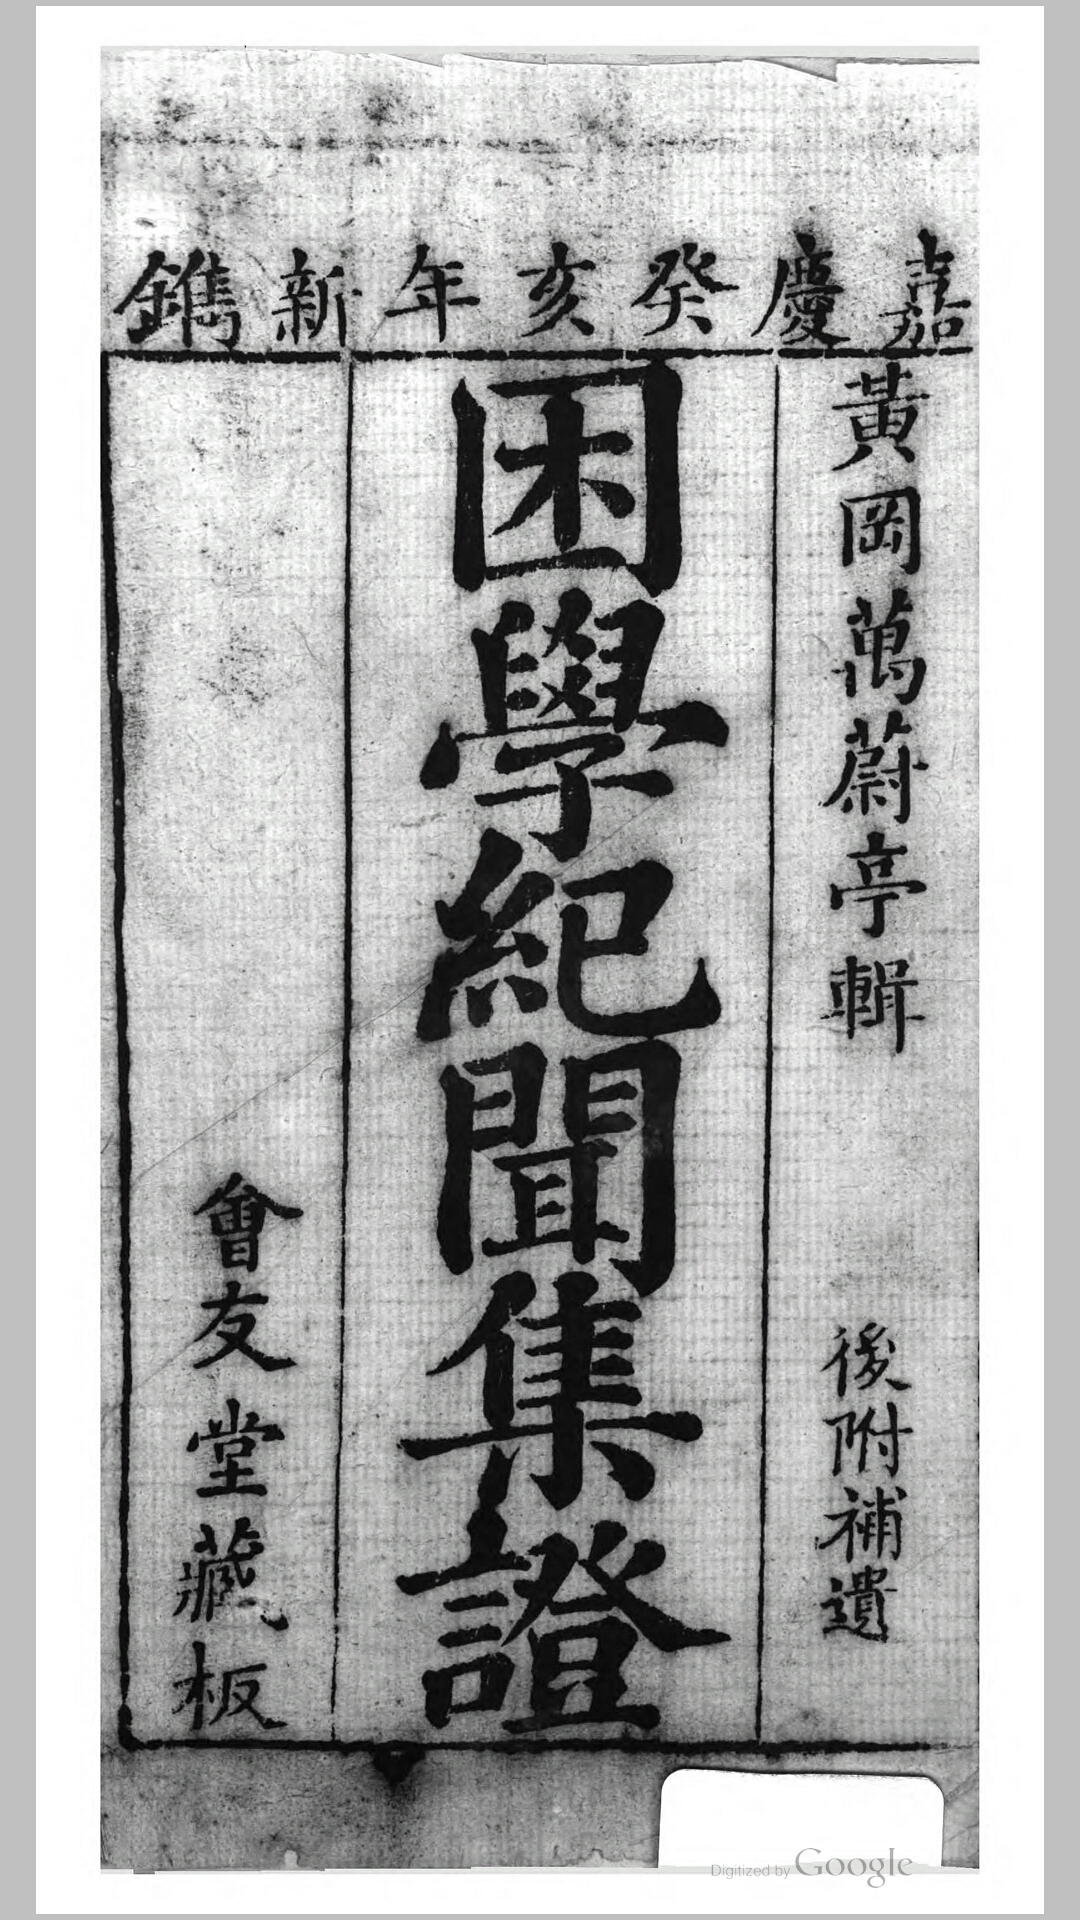 嘉慶癸亥年新鐫
黃岡萬蔚亭輯
後附補遺
困學紀聞集證
會友堂藏板
Digitized by Google